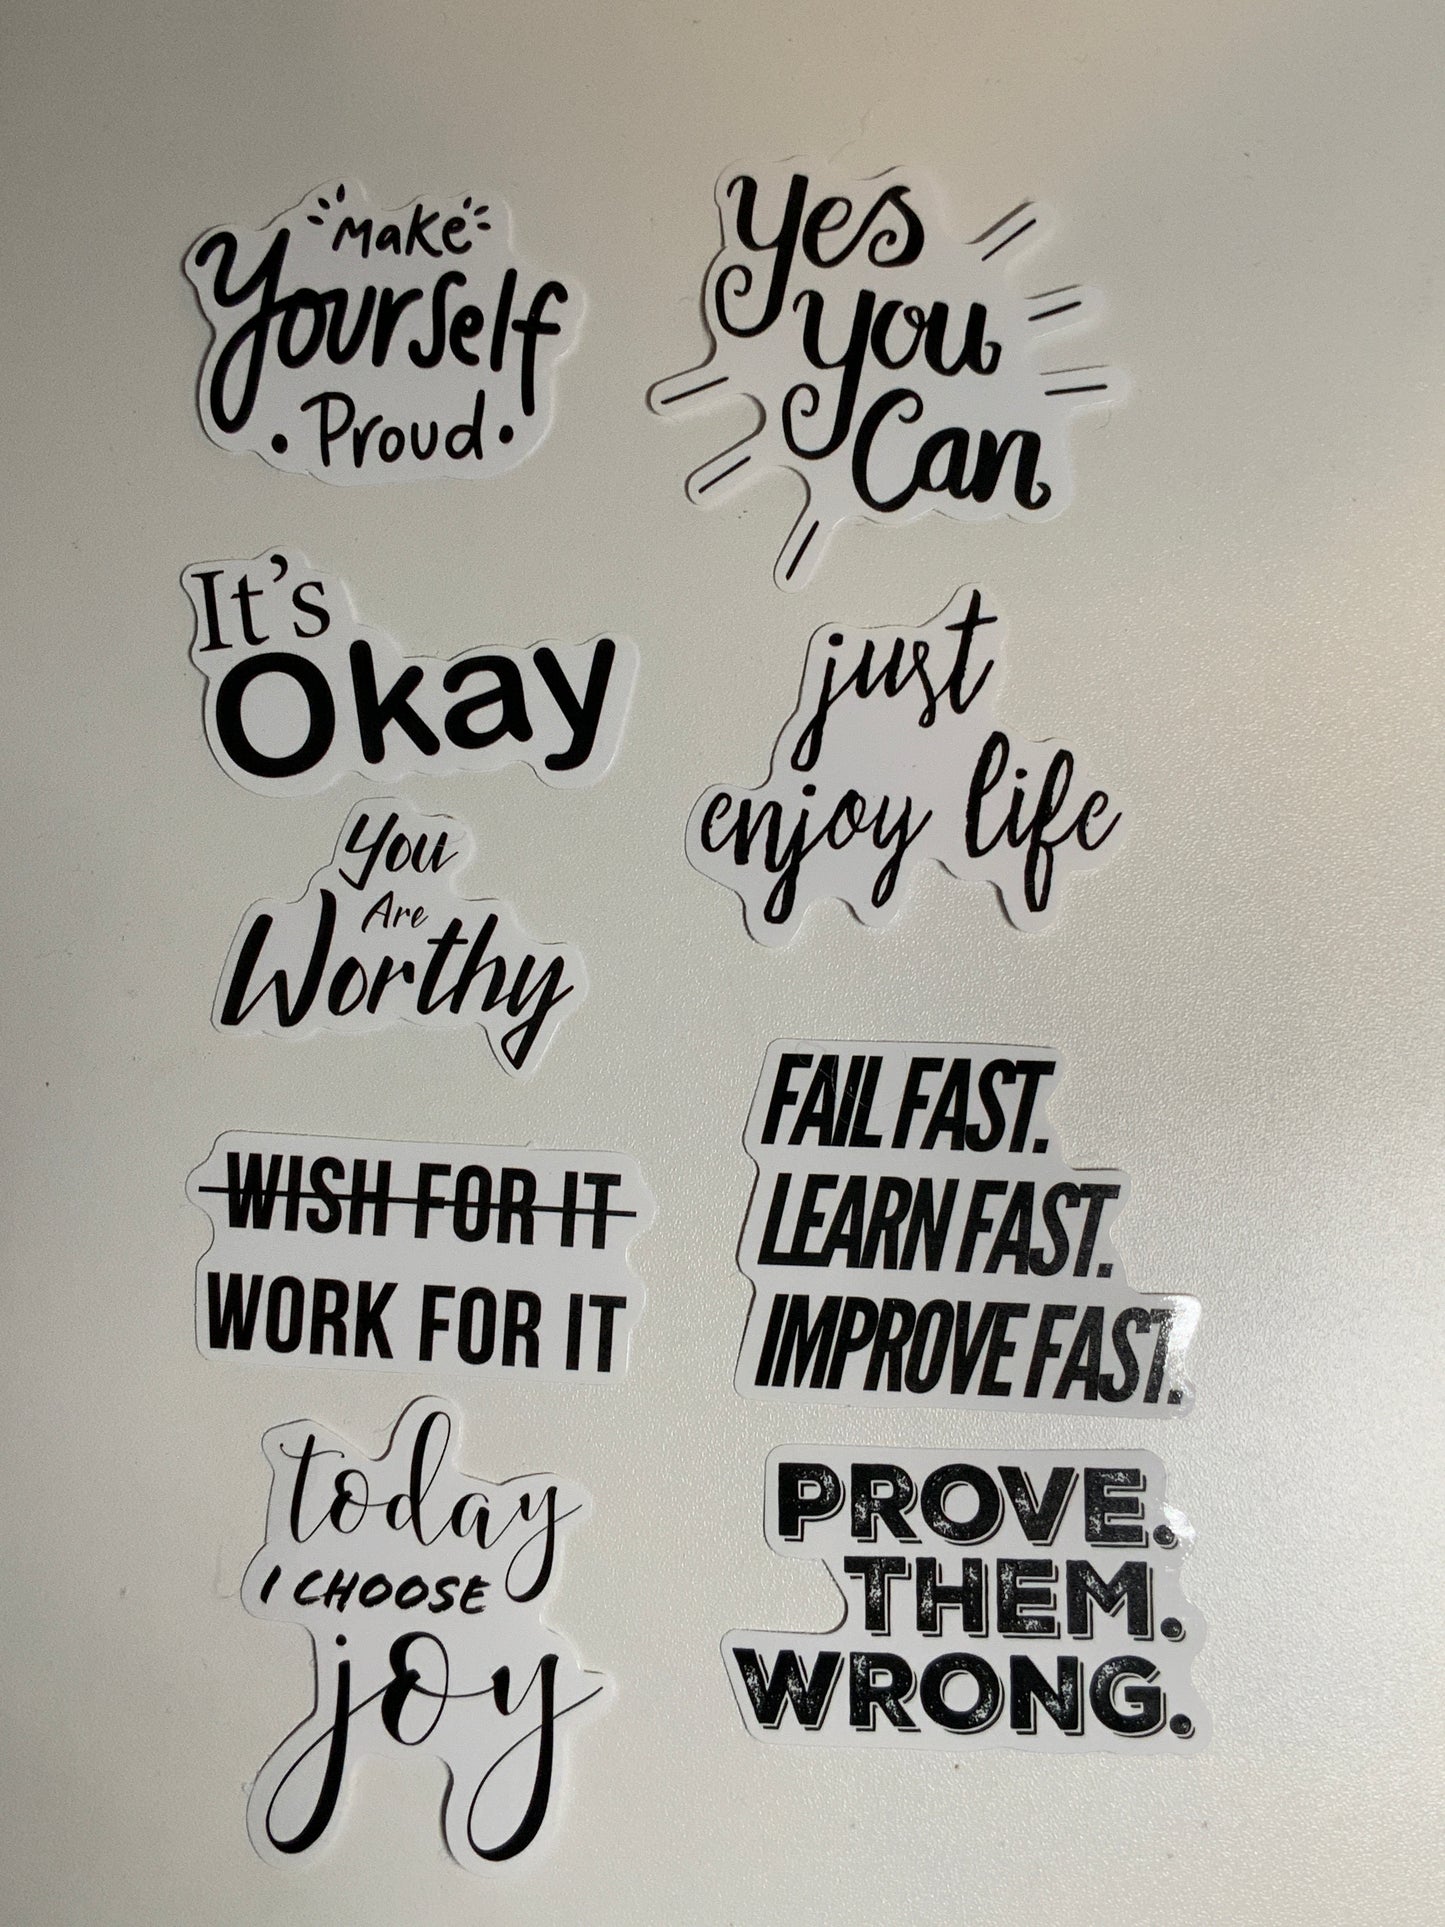 Make
Yourself
• Proud •
Yes
You
Can
It's
Okay
just
enjoy life
You
Are
Worthy
FAIL FAST.
LEARN FAST.
IMPROVE FAST.
WISH FOR IT
WORK FOR IT
today
I CHOOSE
joy
PROVE.
THEM.
WRONG.